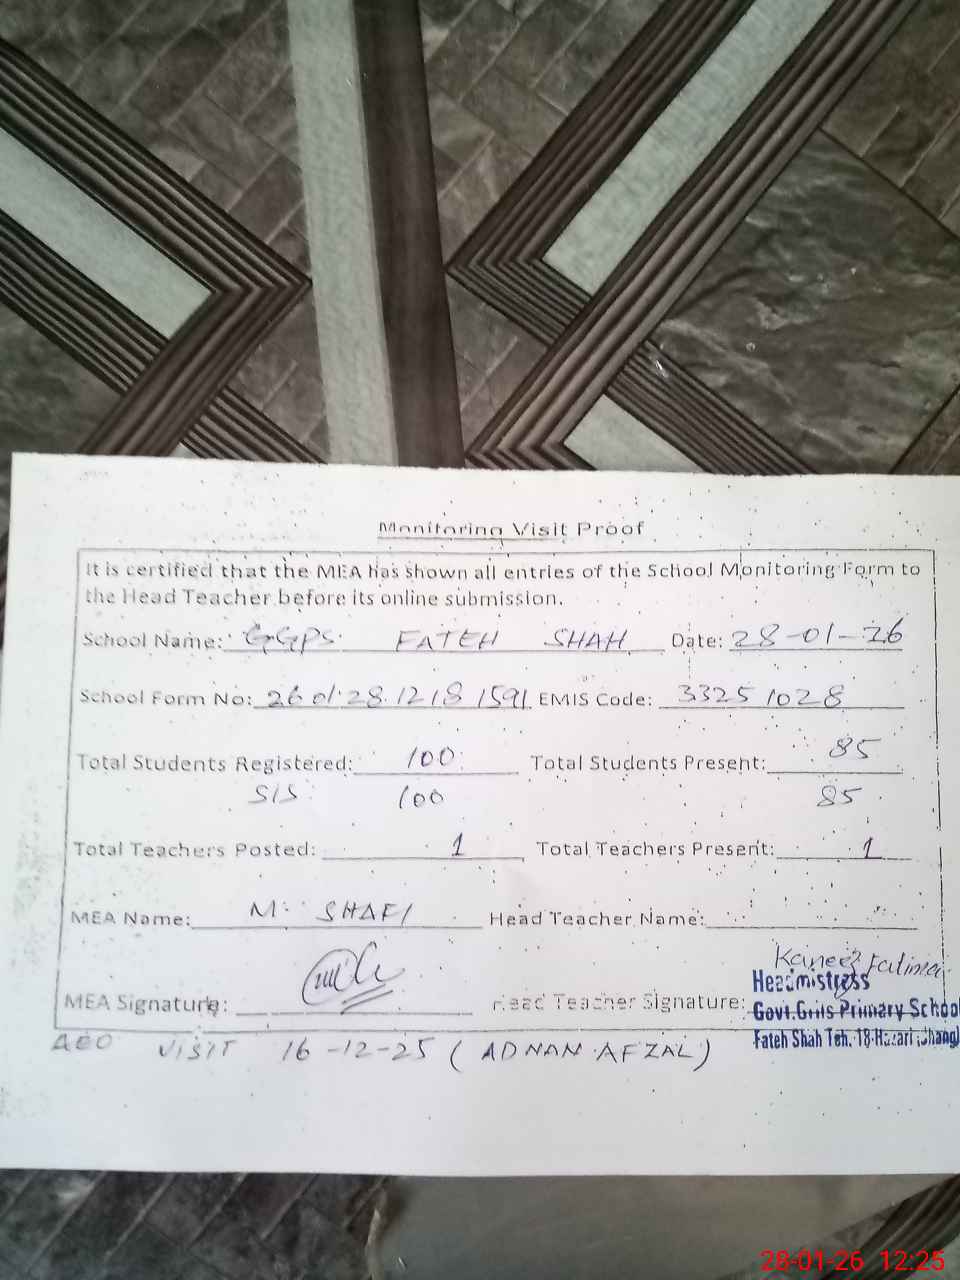 Monitoring Visit Proof
It is certified that the MEA has shown all entries of the School Monitoring Form to
the Head Teacher before its online submission.
School Name: GGPS FATEH SHAH Date: 28-01-26
School Form No: 26012812181591 EMIS Code: 33251028
Total Students Registered: 100 Total Students Present: 85
SIS 100 85
Total Teachers Posted: 1 Total Teachers Present: 1
MEA Name: M. SHAFI Head Teacher Name:
Kaneez Fatima
MEA Signature: Head Teacher Signature:
Headmistress
Govt.Girls Primary School
Fateh Shah Teh. 18-Hazari Jhang
AEO VISIT 16-12-25 (ADNAN AFZAL)
28-01-26 12:25